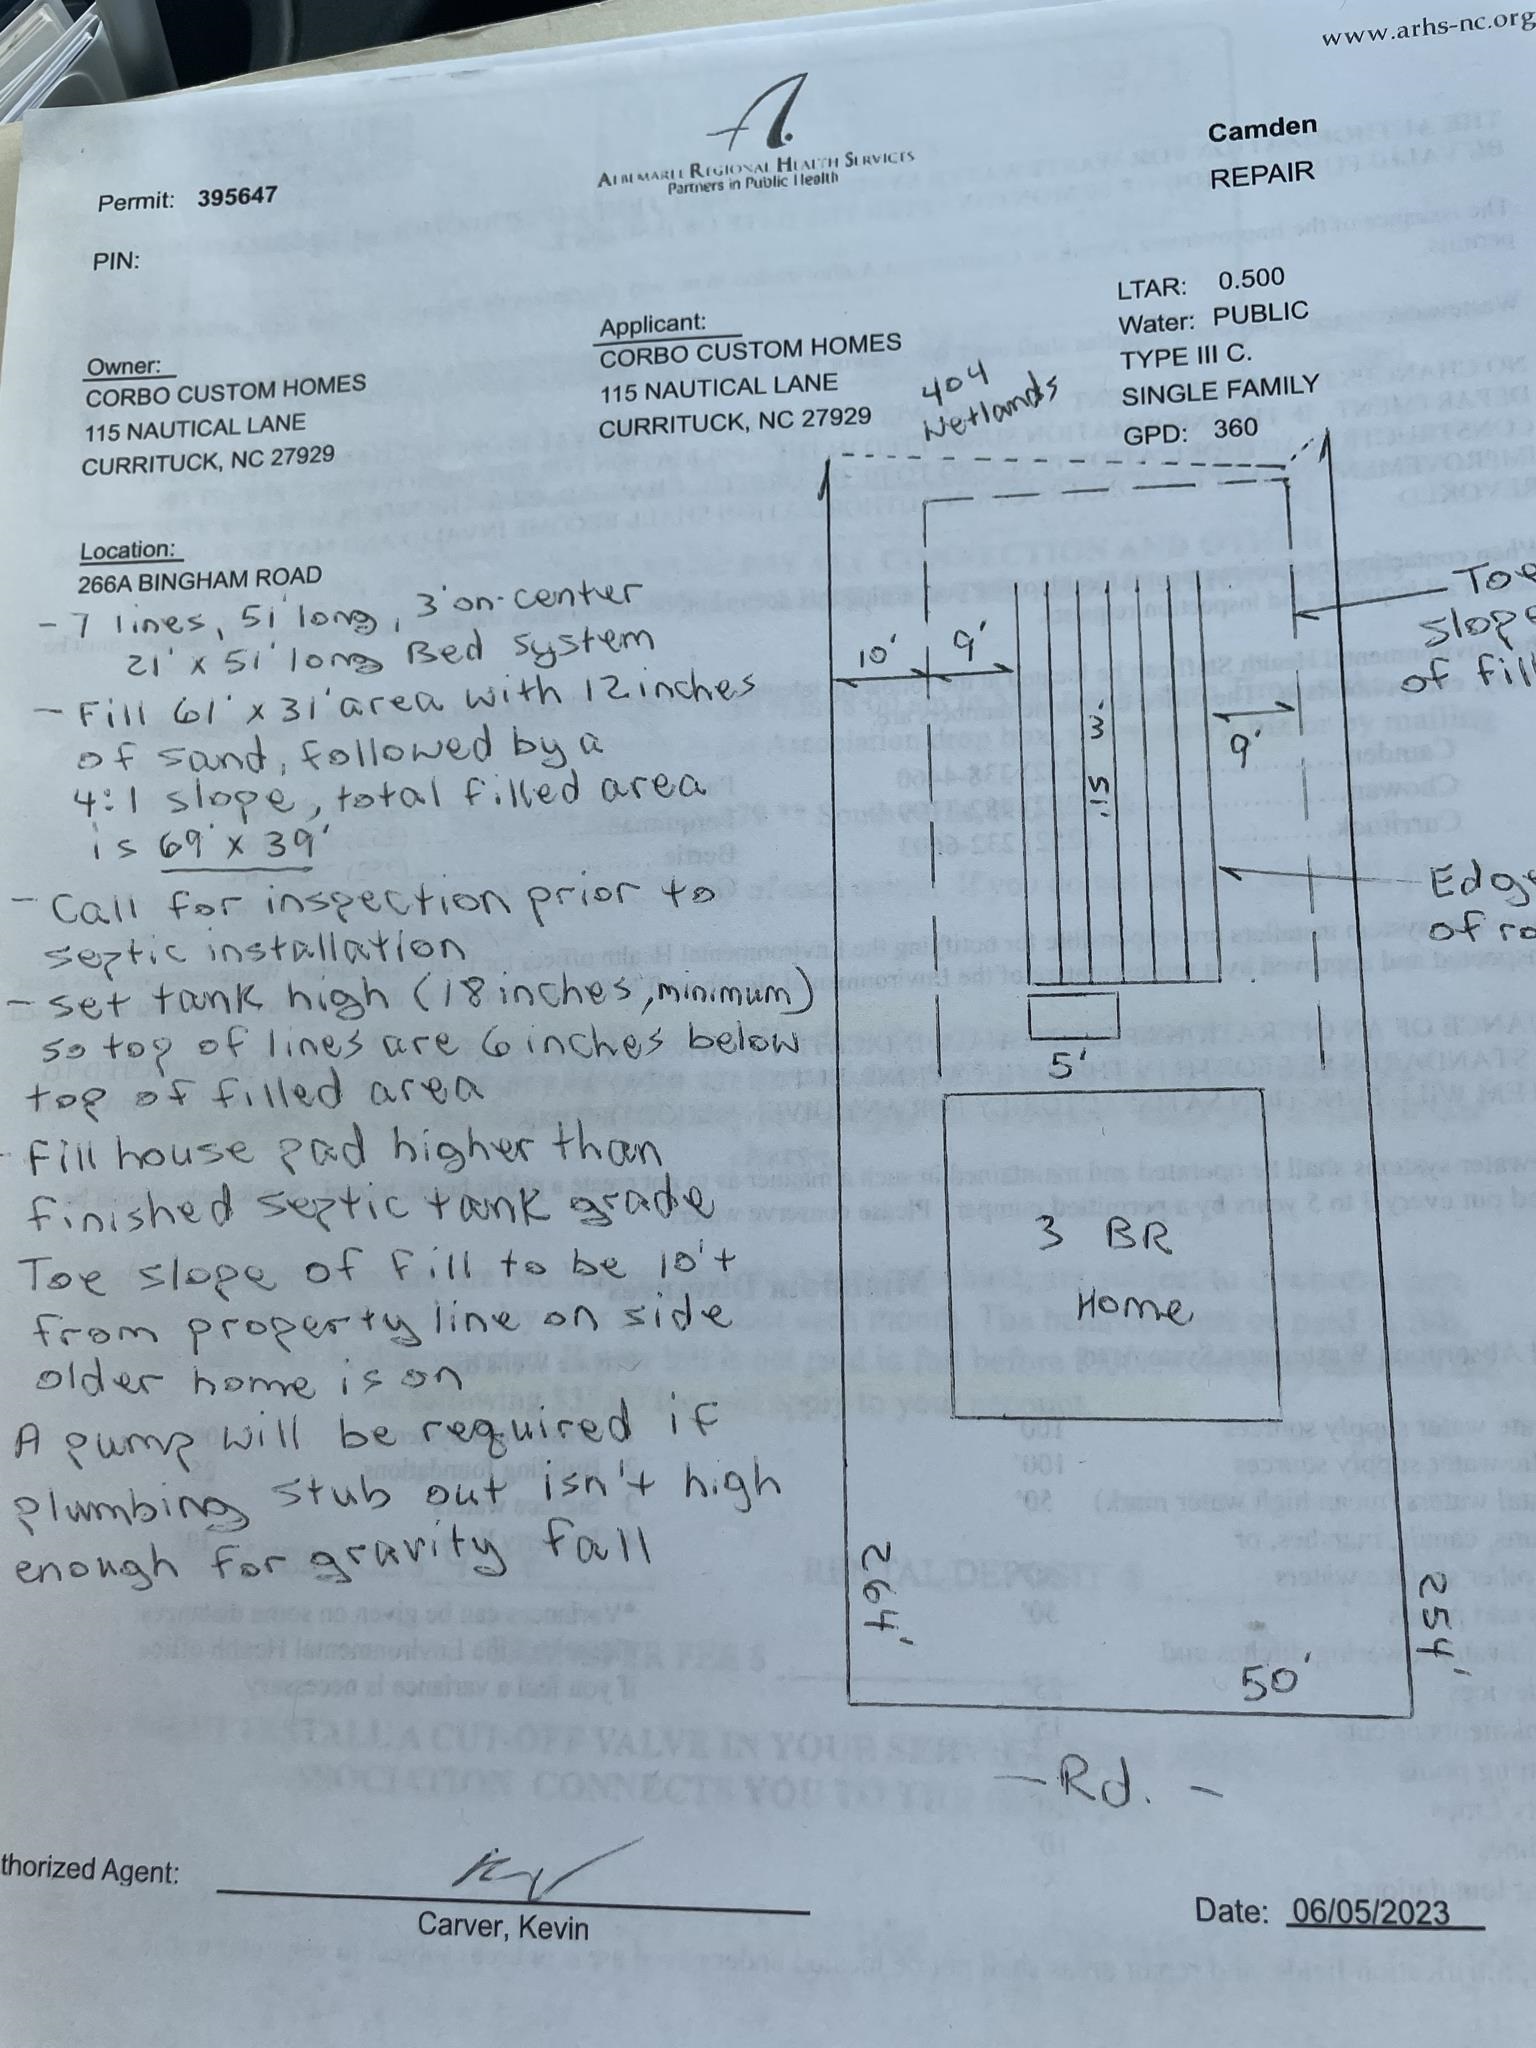 www.arhs-nc.org
ALBEMARLE REGIONAL HEALTH SERVICES
Partners in Public Health
Camden
REPAIR
Permit: 395647
PIN:
LTAR: 0.500
Water: PUBLIC
TYPE III C.
SINGLE FAMILY
GPD: 360
Owner:
CORBO CUSTOM HOMES
115 NAUTICAL LANE
CURRITUCK, NC 27929
Applicant:
CORBO CUSTOM HOMES
115 NAUTICAL LANE
CURRITUCK, NC 27929
404
Wetlands
Location:
266A BINGHAM ROAD
- 7 lines, 51' long, 3' on-center
21' x 51' long Bed system
- Fill 61' x 31' area with 12 inches
of sand, followed by a
4:1 slope, total filled area
is 69' x 39'
- Call for inspection prior to
septic installation
- set tank high (18 inches, minimum)
so top of lines are 6 inches below
top of filled area
- Fill house pad higher than
finished septic tank grade
Toe slope of fill to be 10't
from property line on side
older home is on
A pump will be required if
plumbing stub out isn't high
enough for gravity fall
10'
9'
51'
3'
9'
Toe
slope
of fill
Edge
of
5'
3 BR
Home
264'
254'
50'
- Rd. -
thorized Agent:
Carver, Kevin
Date: 06/05/2023